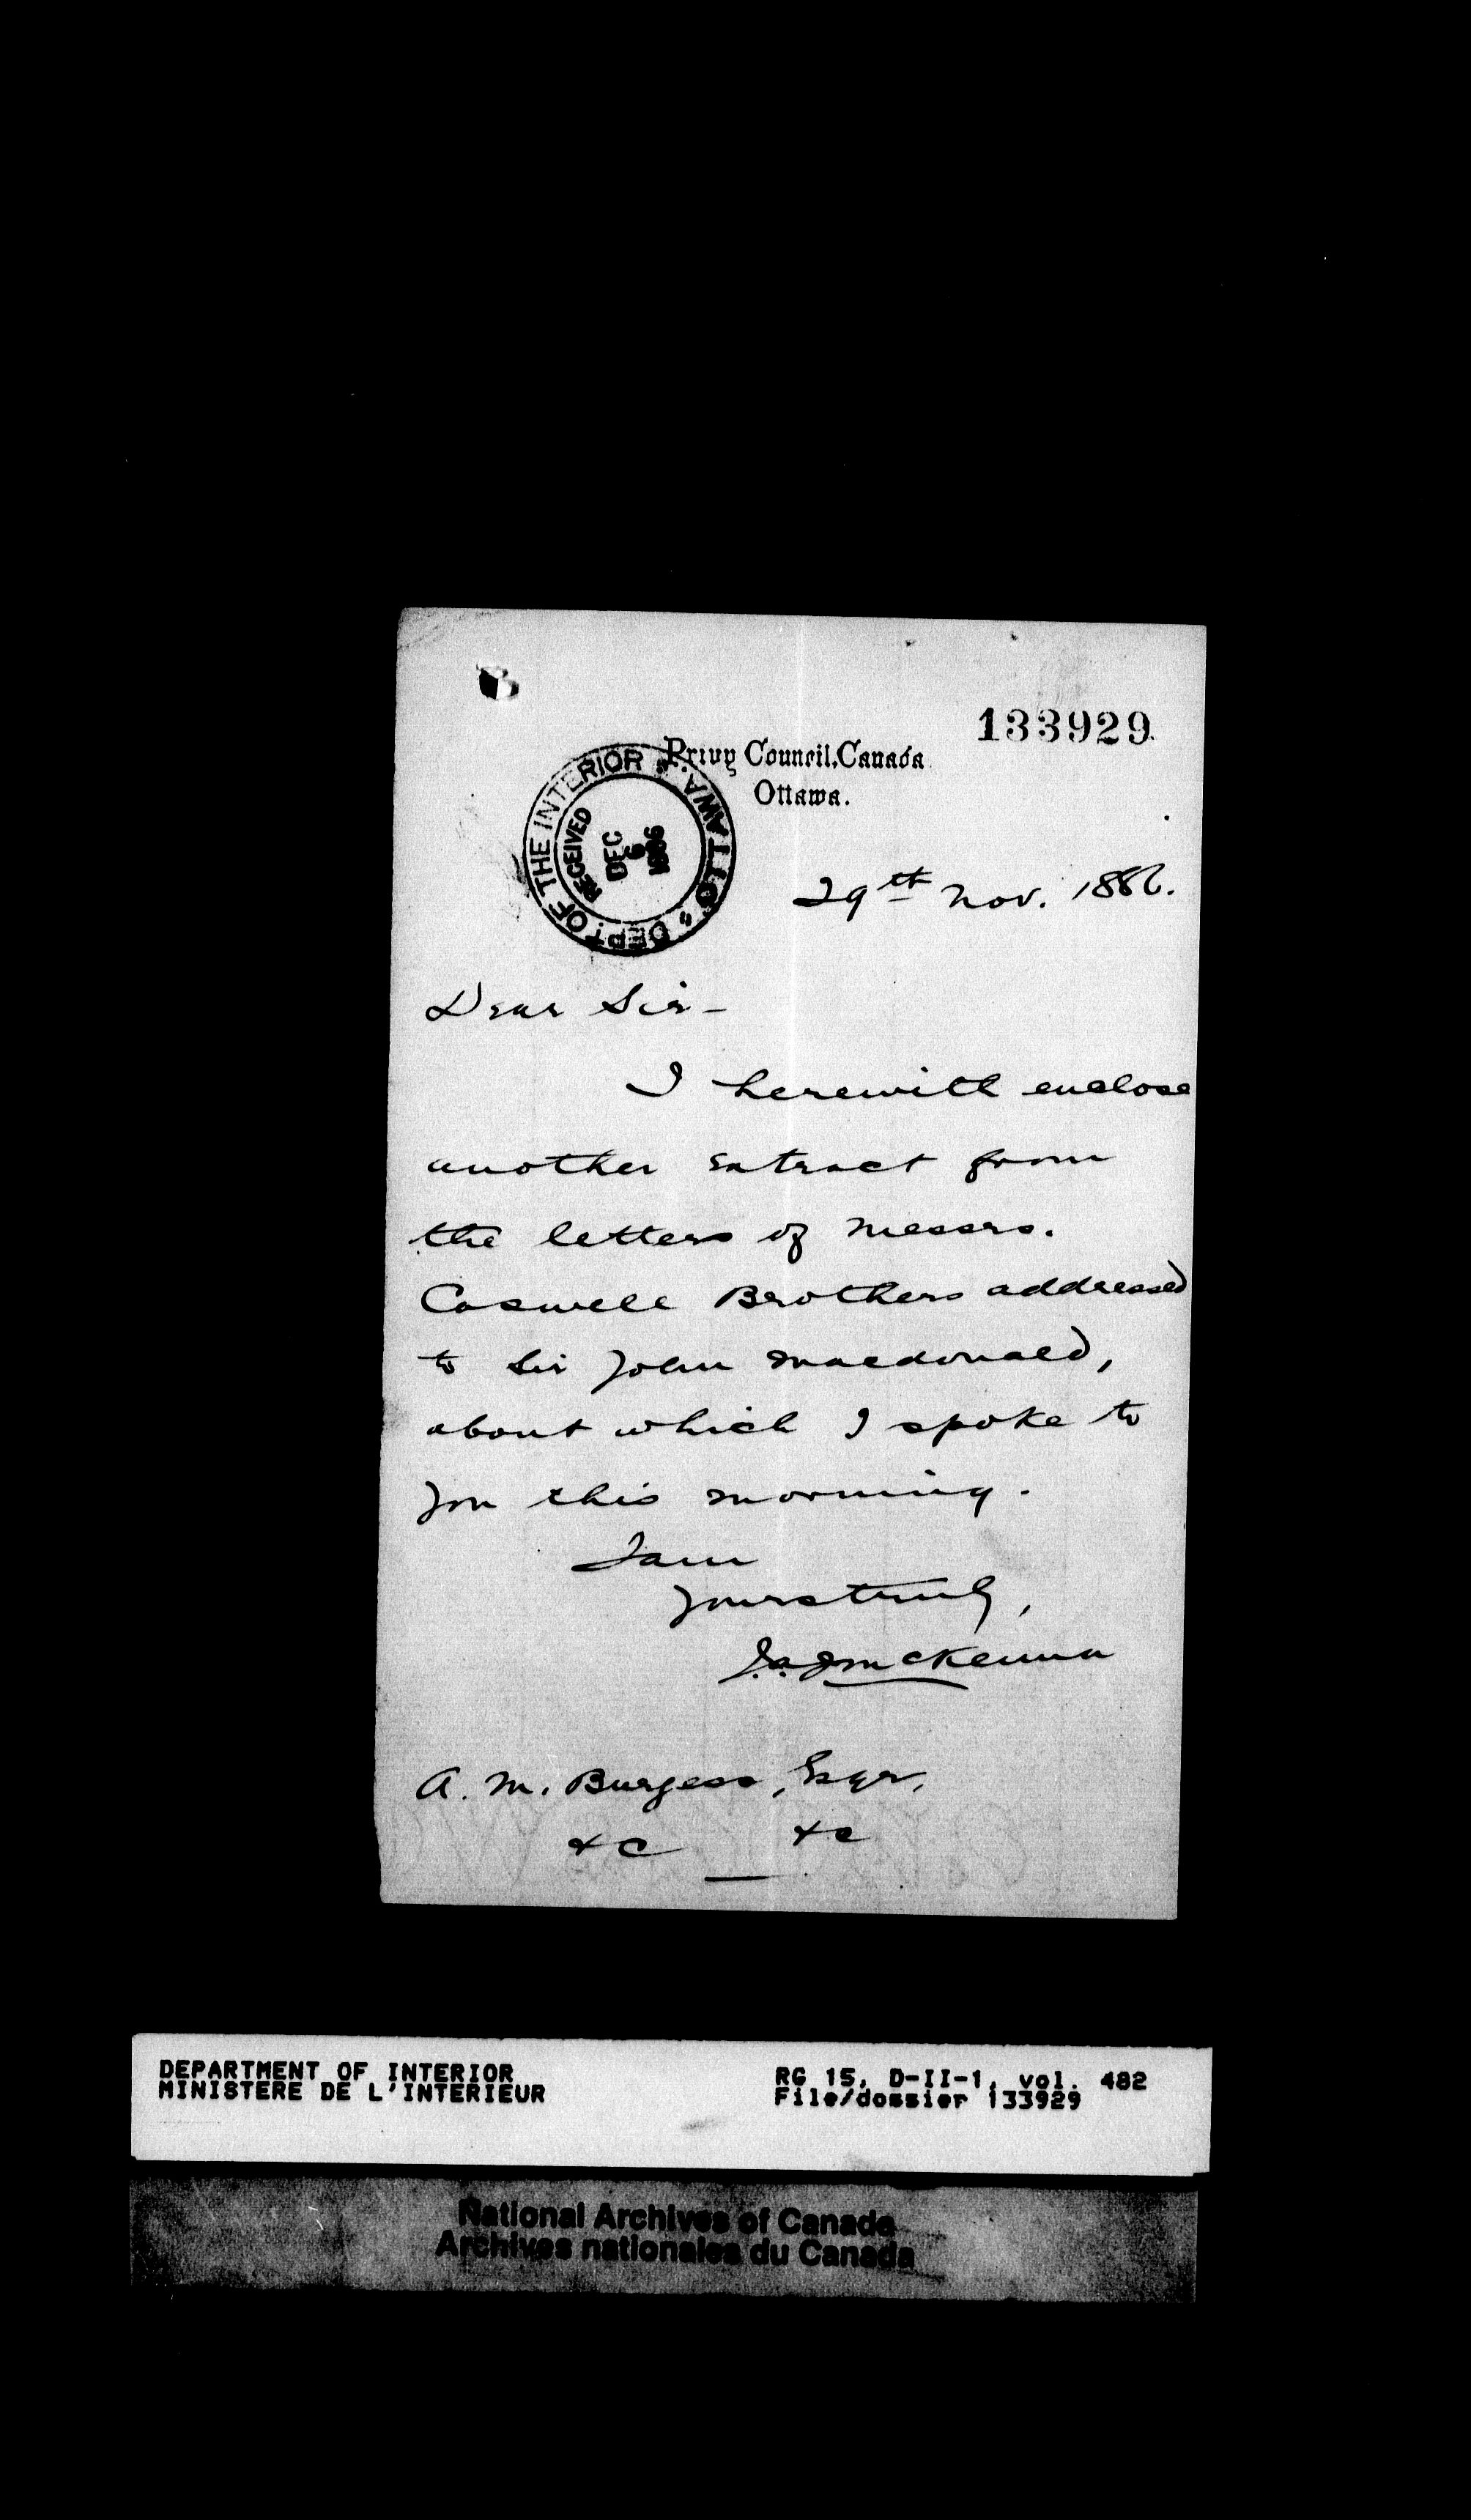 133929
Privy Council, Canada
Ottawa.
DEPT. OF THE INTERIOR " OTTAWA "
RECEIVED
DEC
6
1886
29th Nov. 1886.
Dear Sir -
I herewith enclose
another extract from
the letters of Messrs.
Caswell Brothers addressed
to Sir John Macdonald,
about which I spoke to
you this morning.
I am
Yours truly,
J.A.J. McKenna
A. M. Burgess, Esqr,
&c &c
DEPARTMENT OF INTERIOR
MINISTERE DE L'INTERIEUR
RG 15, D-II-1, vol. 482
File/dossier 133929
National Archives of Canada
Archives nationales du Canada